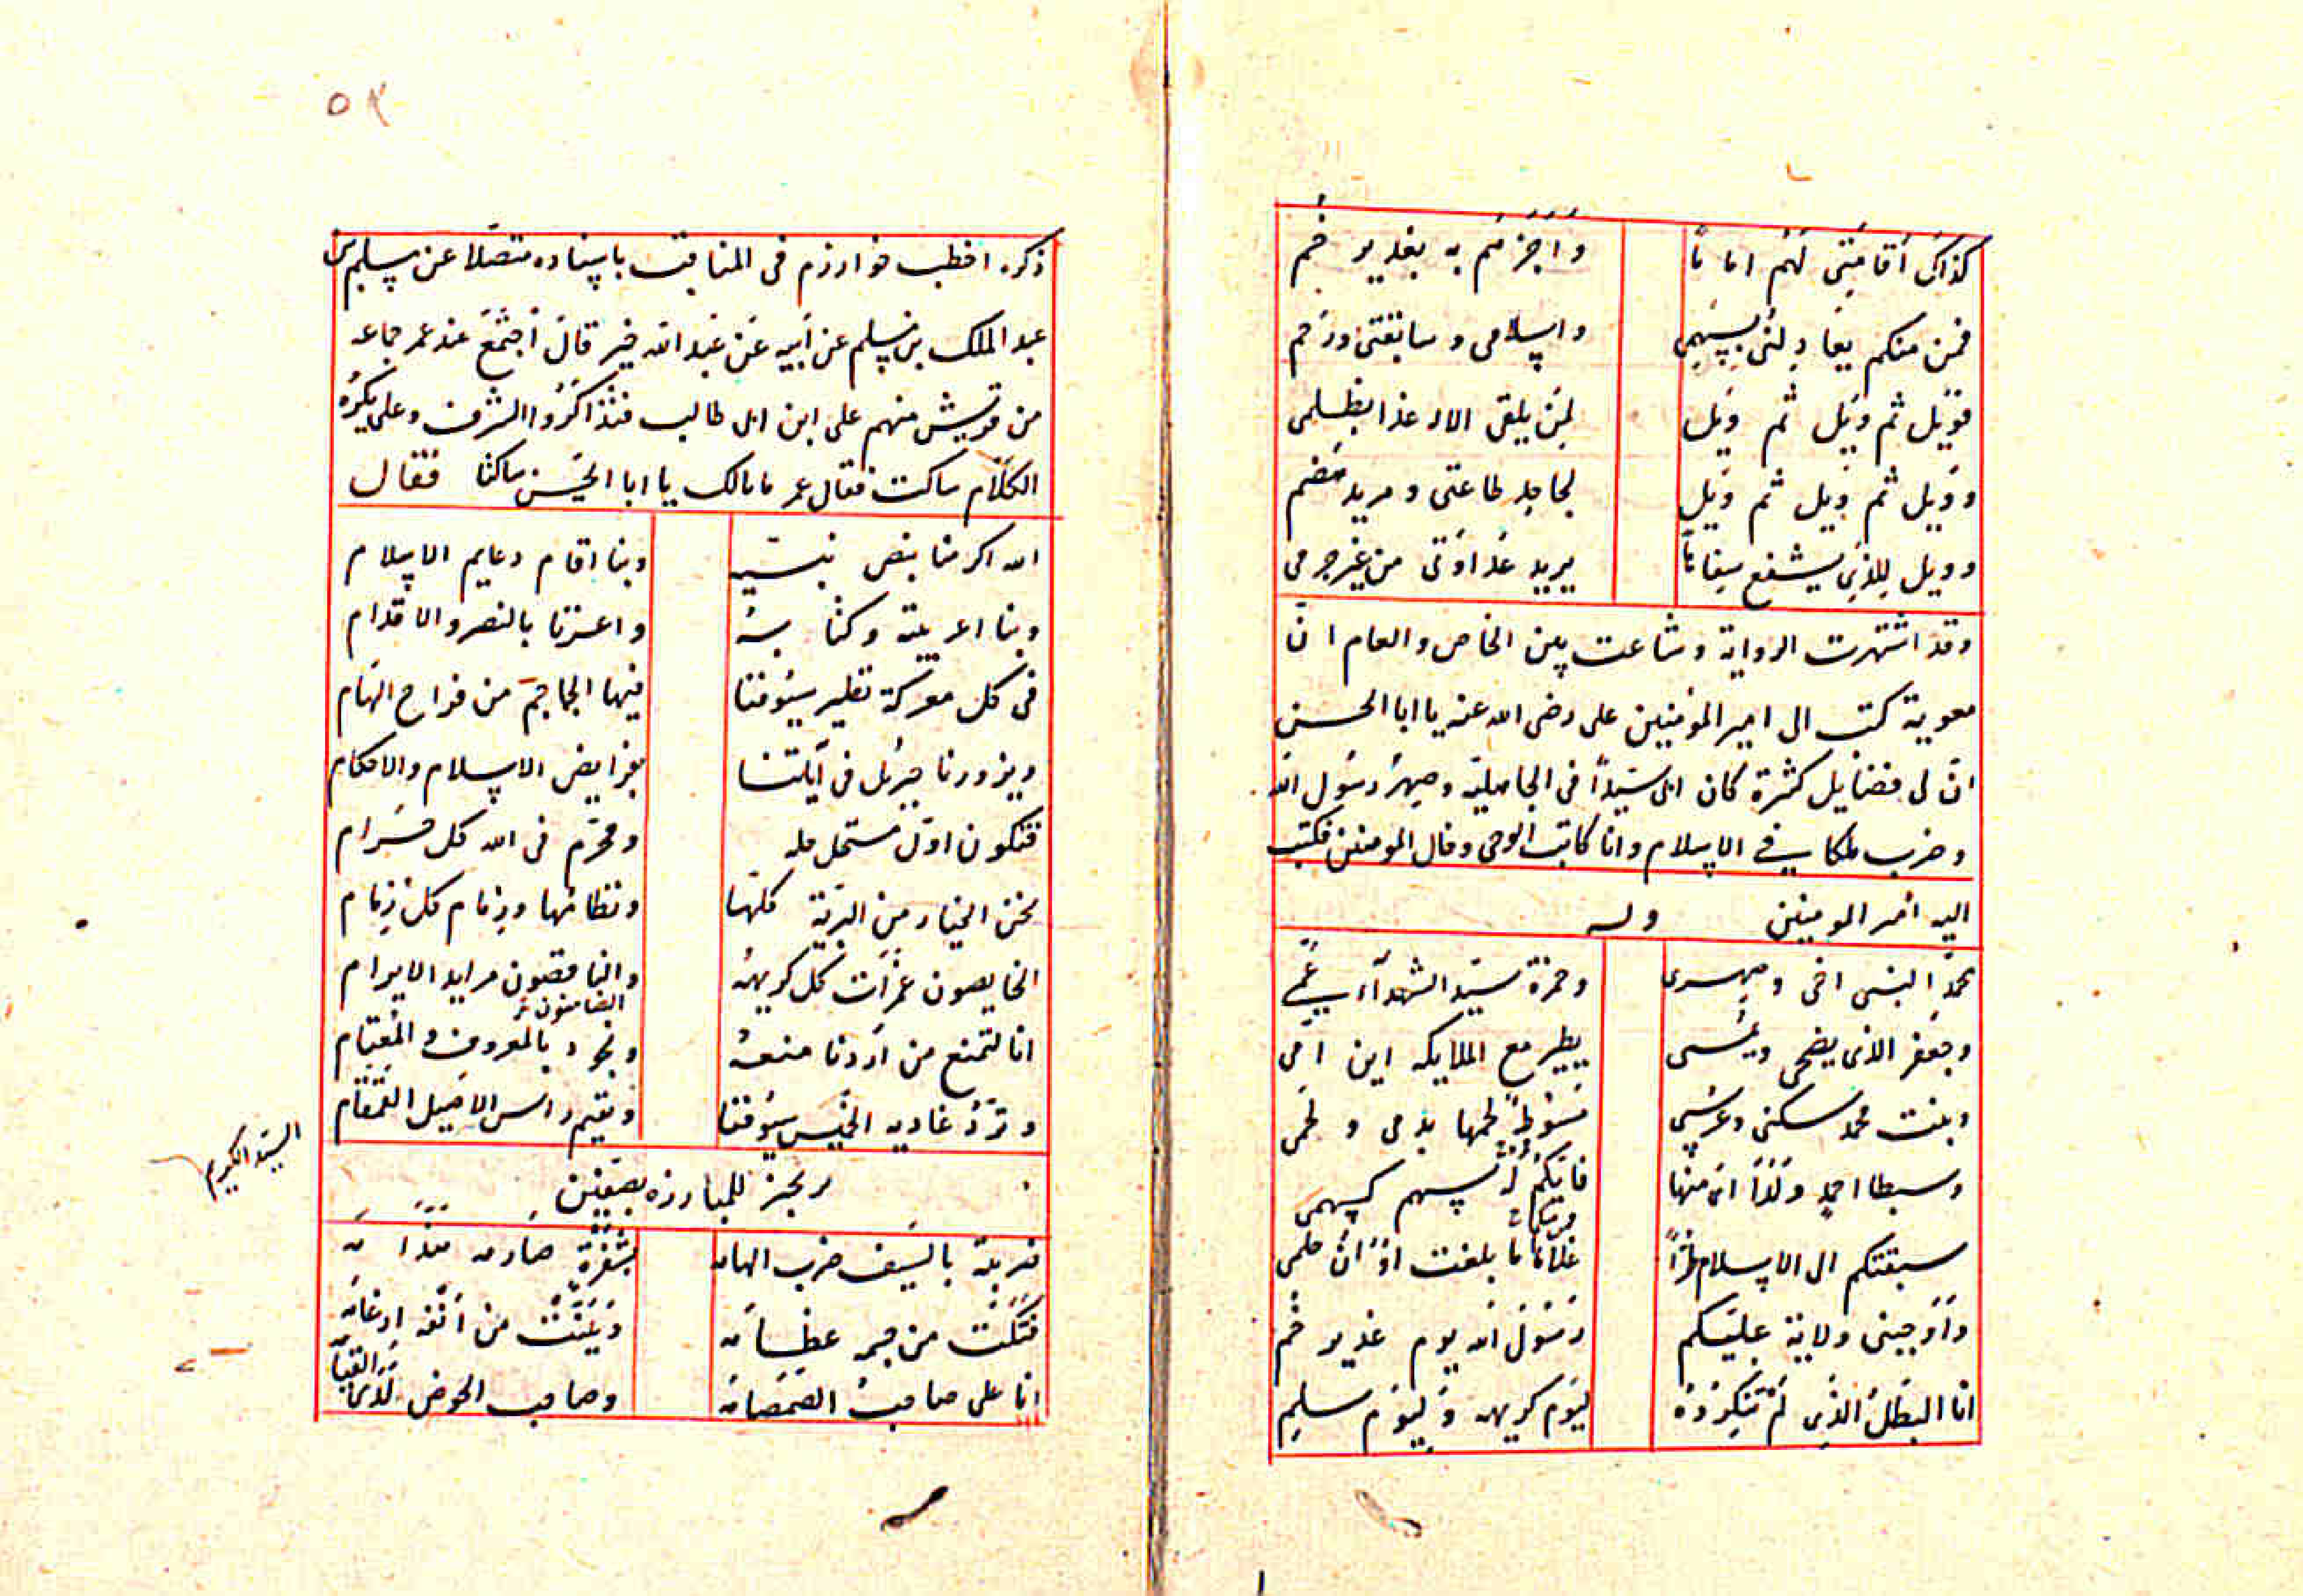 كذاك أقامني لهم اماما
واخبرهم به بغدير خم
فمن منكم يعادلني بسهمي
واسلامي وسابقتي ورحمي
فويل ثم ويل ثم ويل
لمن يلقى الاله غدا بظلمي
وويل ثم ويل ثم ويل
لجاحد طاعتي ومريد هضمي
وويل للذي يشفع سفاها
يريد عداوتي من غير جرمي
وقد اشتهرت الرواية وشاعت بين الخاص والعام ان
معوية كتب الى امير المؤمنين على رضى الله عنه يا ابا الحسن
ان لى فضايل كثيرة كان ابى سيدا فى الجاهلية وصهر رسول الله
وضرب ملكا في الاسلام وانا كاتب الوحى وخال المومنين فكتب
اليه امير المومنين وله
محمد النبى اخى وصهرى
وحمزة سيد الشهدآء عمى
وجعفر الذى يضحى ويمسى
يطير مع الملايكه ابن امى
وبنت محمد سكنى وعرسى
منوط لحمها بدمى ولحمى
وسبطا احمد ولداى منها
فايكم له سهم كسهمى
سبقتكم الى الاسلام طرا
غلاما ما بلغت اوان حلمى
واوجبنى ولاية عليكم
رسول الله يوم غدير خم
انا البطل الذى لم تنكروه
ليوم كريهه وليوم سلم
٥٣
ذكره اخطب خوارزم فى المناقب باسناده متصلا عن سلم بن
عبد الملك بن سلم عن أبيه عن عبد الله خير قال اجتمع عند عمر جماعه
من قريش منهم على ابن ابى طالب فتذاكروا الشرف وعلى يكره
الكلام ساكت فقال عمر مالك يا ابا الحسن ساكتا فقال
الله اكرمنا بنصر نبيه
وبنا اقام دعايم الاسلام
وبنا اعز نبيه وكتابه
واعزنا بالنصر والاقدام
فى كل معركة تطير سيوفنا
فيها الجماجم من فراخ الهام
ويزورنا جبرئل فى آياتنا
بفرايض الاسلام والاحكام
فنكون اول مستحل حله
ومحرم فى الله كل حرام
نحن الخيار من البرية كلها
ونظامها وزمام كل زمام
الخايضون غمرات كل كريهه
والناقضون مراير الابرام
الضامنون
انا لنمنع من اردنا منعه
ونجود بالمعروف والمعتام
وترد غادية الخميس سيوفنا
ونقيم راس الاصيد القمقام
السيد الكريم
رجز للمبارزه بصفين
ضربته بالسيف ضرب الهامه
بشفرة صارمه هدامه
فبتكت من جسمه عظامه
وبينت من انفه ارغامه
انا على صاحب الصمصامه
وصاحب الحوض لدى القيامه